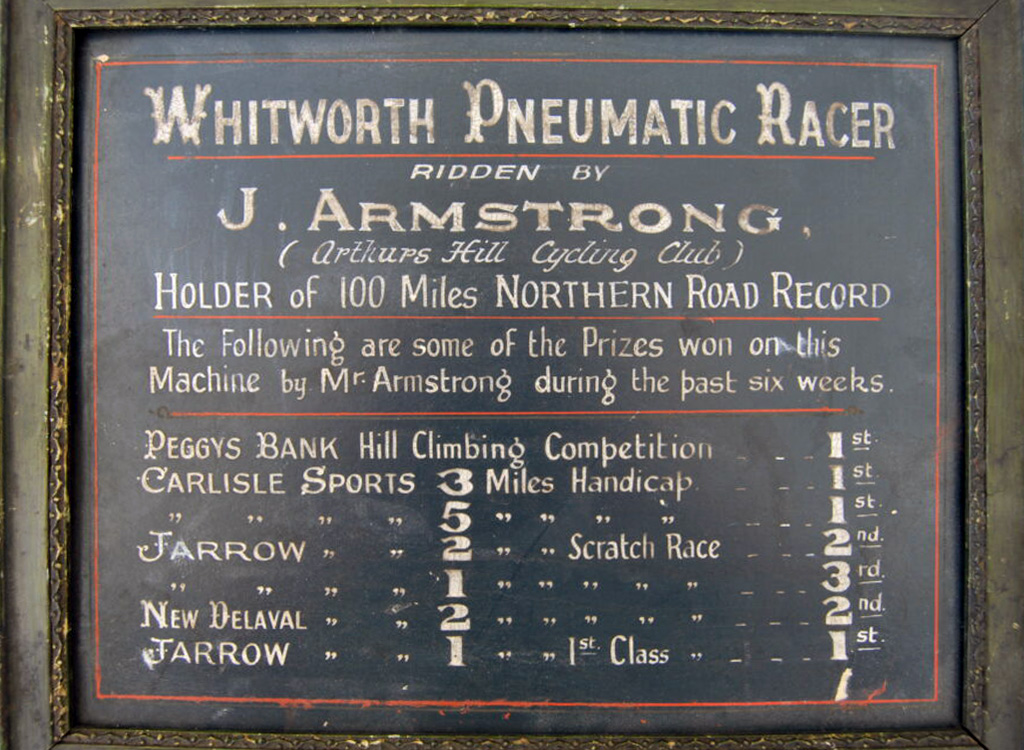 WHITWORTH PNEUMATIC RACER
RIDDEN BY
J. ARMSTRONG.
(Arthurs Hill Cycling Club)
HOLDER of 100 Miles NORTHERN ROAD RECORD
The Following are some of the Prizes won on this
Machine by Mr. Armstrong during the past six weeks.
PEGGYS BANK Hill Climbing Competition _ _ _ 1st.
CARLISLE SPORTS 3 Miles Handicap. _ _ _ 1st.
„ „ „ „ 5 „ „ „ „ _ _ _ 1st.
JARROW „ „ 2 „ „ Scratch Race _ _ _ 2nd.
„ „ „ „ 1 „ „ „ „ „ _ _ _ 3rd.
NEW DELAVAL „ „ 2 „ „ „ „ „ _ _ _ 2nd.
JARROW „ „ 1 „ „ 1st. Class „ _ _ _ 1st.